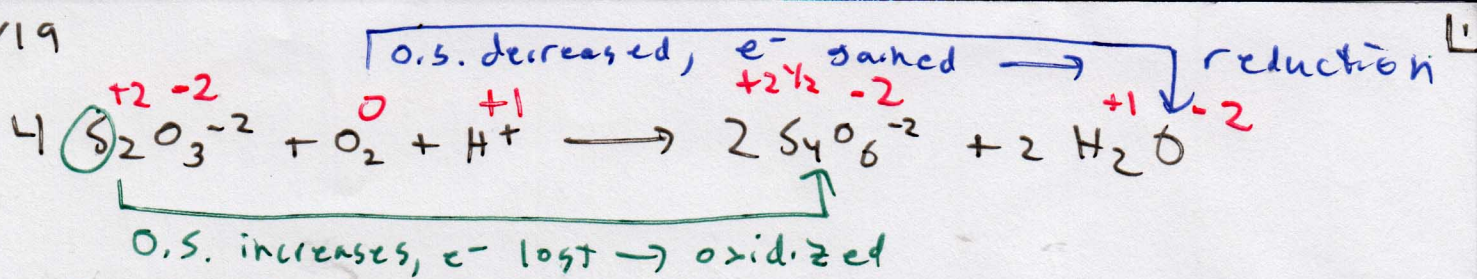 19
O.S. decreased, e⁻ gained → reduction
+2 -2 0 +1 +2½ -2 +1 -2
4 S₂O₃⁻² + O₂ + H⁺ → 2 S₄O₆⁻² + 2 H₂O
O.S. increases, e⁻ lost → oxidized